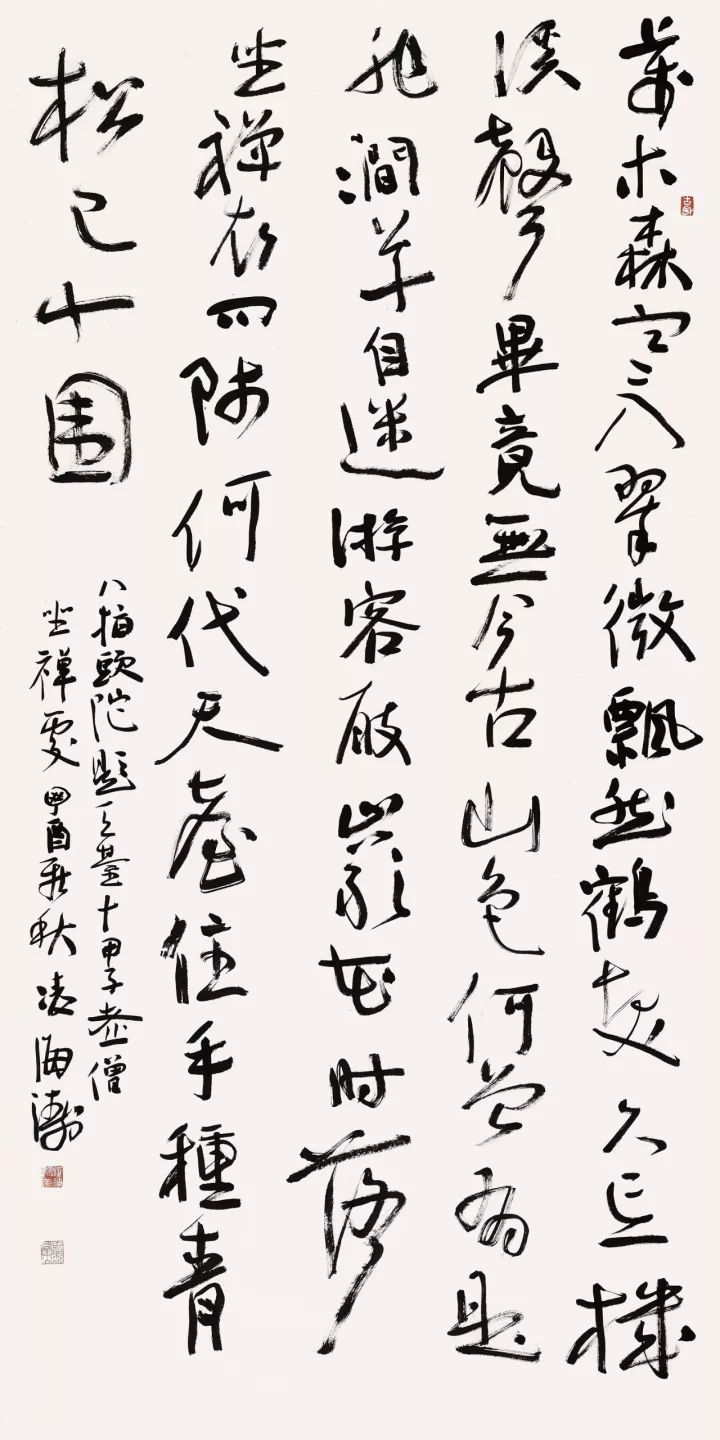 萬木森空入翠微飄然鶴髮久忘機
溪聲畢竟無今古山色何曾有是
非澗草自迷游客屐巖花時落
坐禪衣師何代天臺住手種青
松已十围
八指頭陀題天臺十甲子老僧
坐禪處酉秋凌海濤